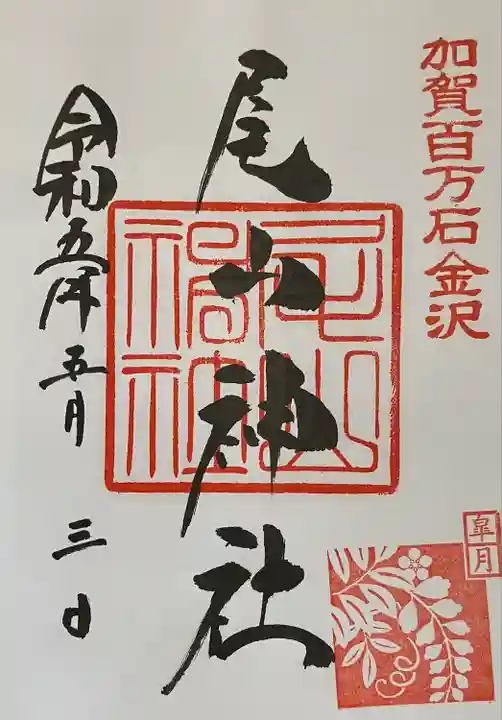 加賀百万石金沢
尾山神社
尾山神社
令和五年五月三日
皐月